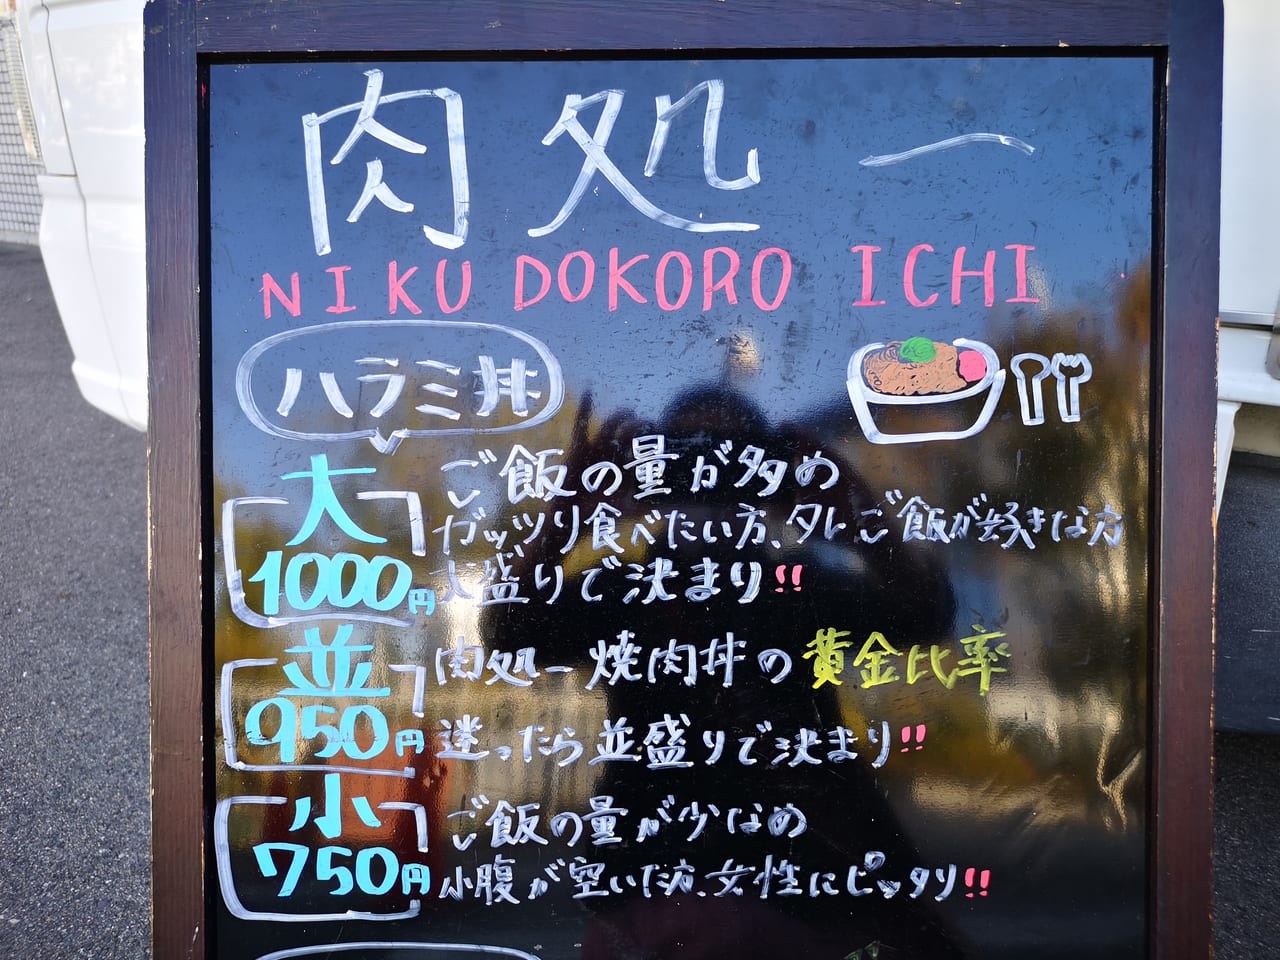 肉処 一
NIKU DOKORO ICHI
ハラミ丼
大
1000円
ご飯の量が多め
ガッツリ食べたい方、タレご飯が好きな方
大盛りで決まり!!
並
950円
肉処一焼肉丼の黄金比率
迷ったら並盛りで決まり!!
小
750円
ご飯の量が少なめ
小腹が空いた方、女性にピッタリ!!